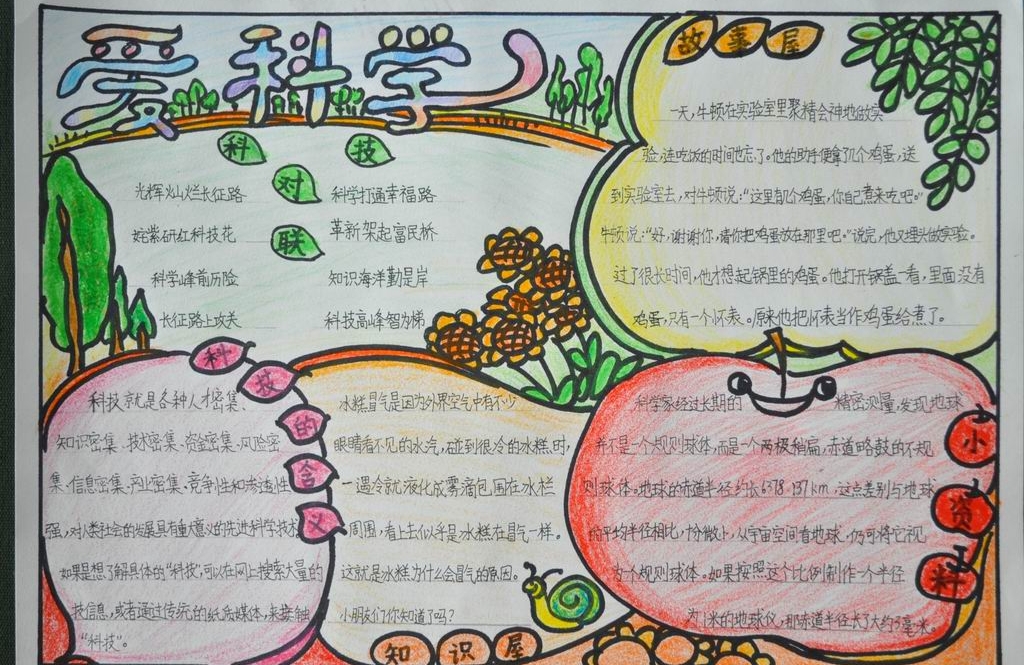 爱科学
科技对联
光辉灿烂长征路 科学打通幸福路
姹紫研红科技花 革新架起富民桥
科学峰前历险 知识海洋勤是岸
长征路上攻关 科技高峰智为梯
故事屋
一天,牛顿在实验室里聚精会神地做实
验,连吃饭的时间也忘了。他的助手便拿了几个鸡蛋,送
到实验室去,对牛顿说:“这里有几个鸡蛋,你自己煮来吃吧。”
牛顿说:“好,谢谢你,请你把鸡蛋放在那里吧。”说完,他又埋头做实验。
过了很长时间,他才想起锅里的鸡蛋。他打开锅盖一看,里面没有
鸡蛋,只有一个怀表。原来他把怀表当作鸡蛋给煮了。
科技的含义
科技就是各种人才密集、
知识密集、技术密集、资金密集、风险密
集、信息密集、产业密集、竞争性和渗透性
强,对人类社会的发展具有重大意义的先进科学技术
如果是想了解具体的“科技”,可以在网上搜索大量的
技信息,或者通过传统的纸质媒体,来接触
“科技”。
冰糕冒气是因为外界空气中有不少
眼睛看不见的水汽,碰到很冷的冰糕时,
一遇冷就液化成雾滴包围在冰糕
周围,看上去似乎是冰糕在冒气一样。
这就是冰糕为什么会冒气的原因。
小朋友们你知道了吗?
知识屋
小资料
科学家经过长期的 精密测量,发现地球
并不是一个规则球体,而是一个两极稍扁,赤道略鼓的不规
则球体。地球的赤道半径约长6378.137km,这点差别与地球
的平均半径相比,十分微小,从宇宙空间看地球,仍可将它视
为个规则球体。如果按照这个比例制作一个半径
为1米的地球仪,那赤道半径长了大约3毫米。